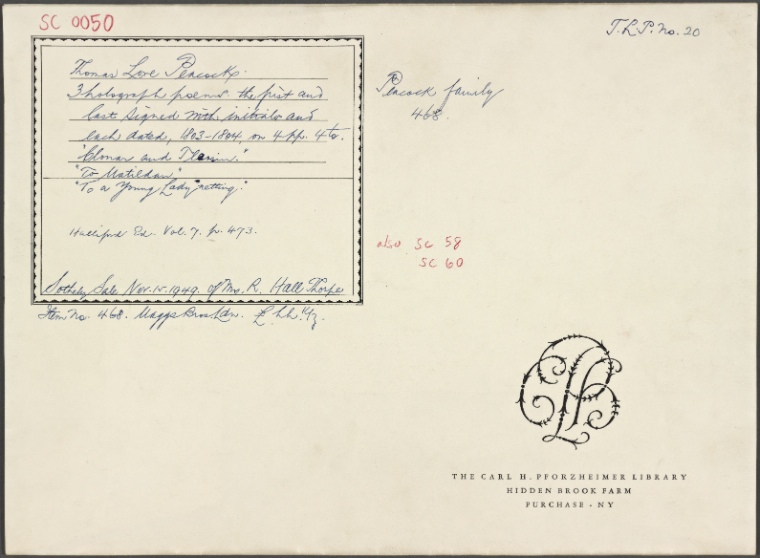 SC 0050
T.L.P. No. 20
Thomas Love Peacock.
3 holograph poems the first and
last signed with initials and
each dated, 1803-1804, on 4 pp. 4to.
"Elmar and
"To Matilda"
"To a Young Lady netting."
Halliford Ed. Vol. 7. p. 473.
Sotheby Sale Nov. 15. 1949. of Mrs. R. Hall Thorpe
Item No. 468. Maggs Bros. Ldn.
Peacock family
468.
also SC 58
SC 60
THE CARL H. PFORZHEIMER LIBRARY
HIDDEN BROOK FARM
PURCHASE · NY